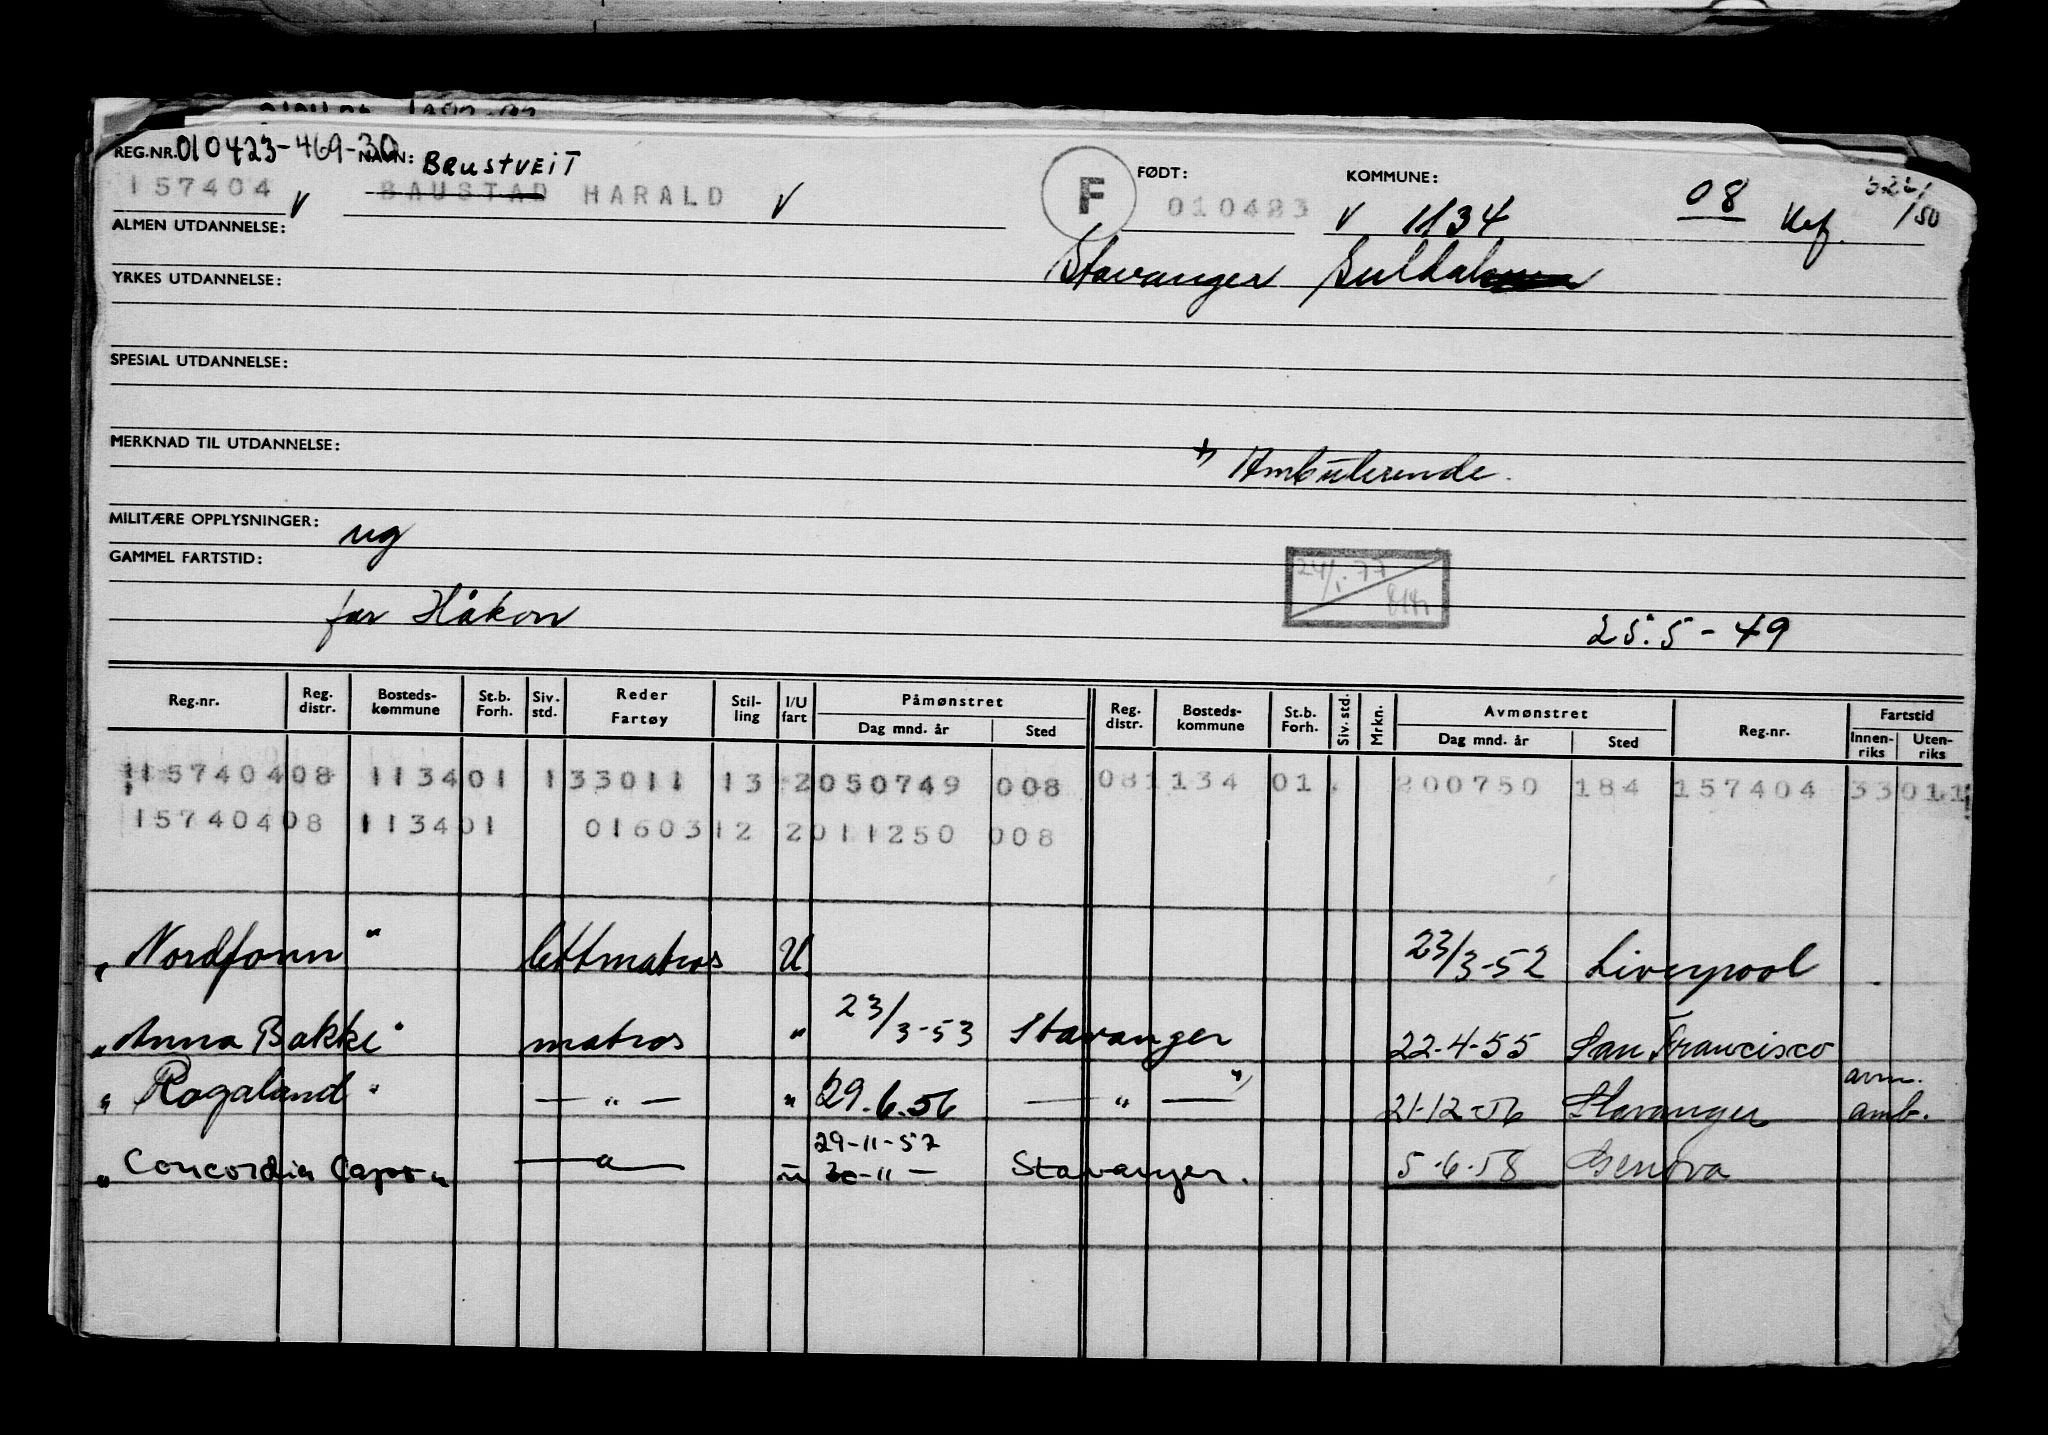 REG.NR. 010423-469-30 NAVN: BRUSTVEIT
157404 V BAUSTAD HARALD V F FØDT: 010423 KOMMUNE: V 1134 08
ALMEN UTDANNELSE:
Stavanger Suldal
YRKES UTDANNELSE:
SPESIAL UTDANNELSE:
MERKNAD TIL UTDANNELSE:
Ambulerende.
MILITÆRE OPPLYSNINGER: ug
GAMMEL FARTSTID:
24/1.77
far Håkon 25.5-49
Reg.nr. Reg. distr. Bosteds-kommune St.b. Forh. Siv. std. Reder Fartøy Stil-ling I/U fart Påmønstret Dag mnd. år Sted Reg. distr. Bosteds-kommune St.b. Forh. Siv. std. Mrkn. Avmønstret Dag mnd. år Sted Reg.nr. Fartstid Innen-riks Uten-riks
157404 08 1134 01 1 33011 13 2 050749 008 08 1134 01 200750 184 157404 33011
157404 08 1134 01 01603 12 2 011250 008
"Nordfonn" lettmatros U 23/3-52 Liverpool
"Anna Bakke" matros " 23/3-53 Stavanger 22-4-55 San Francisco
"Rogaland" — " — " 29.6.56 — " — 21-12-56 Stavanger avm. amb.
29-11-57
"Concordia Capo" — " — u 30-11 — Stavanger. 5-6-58 Genova